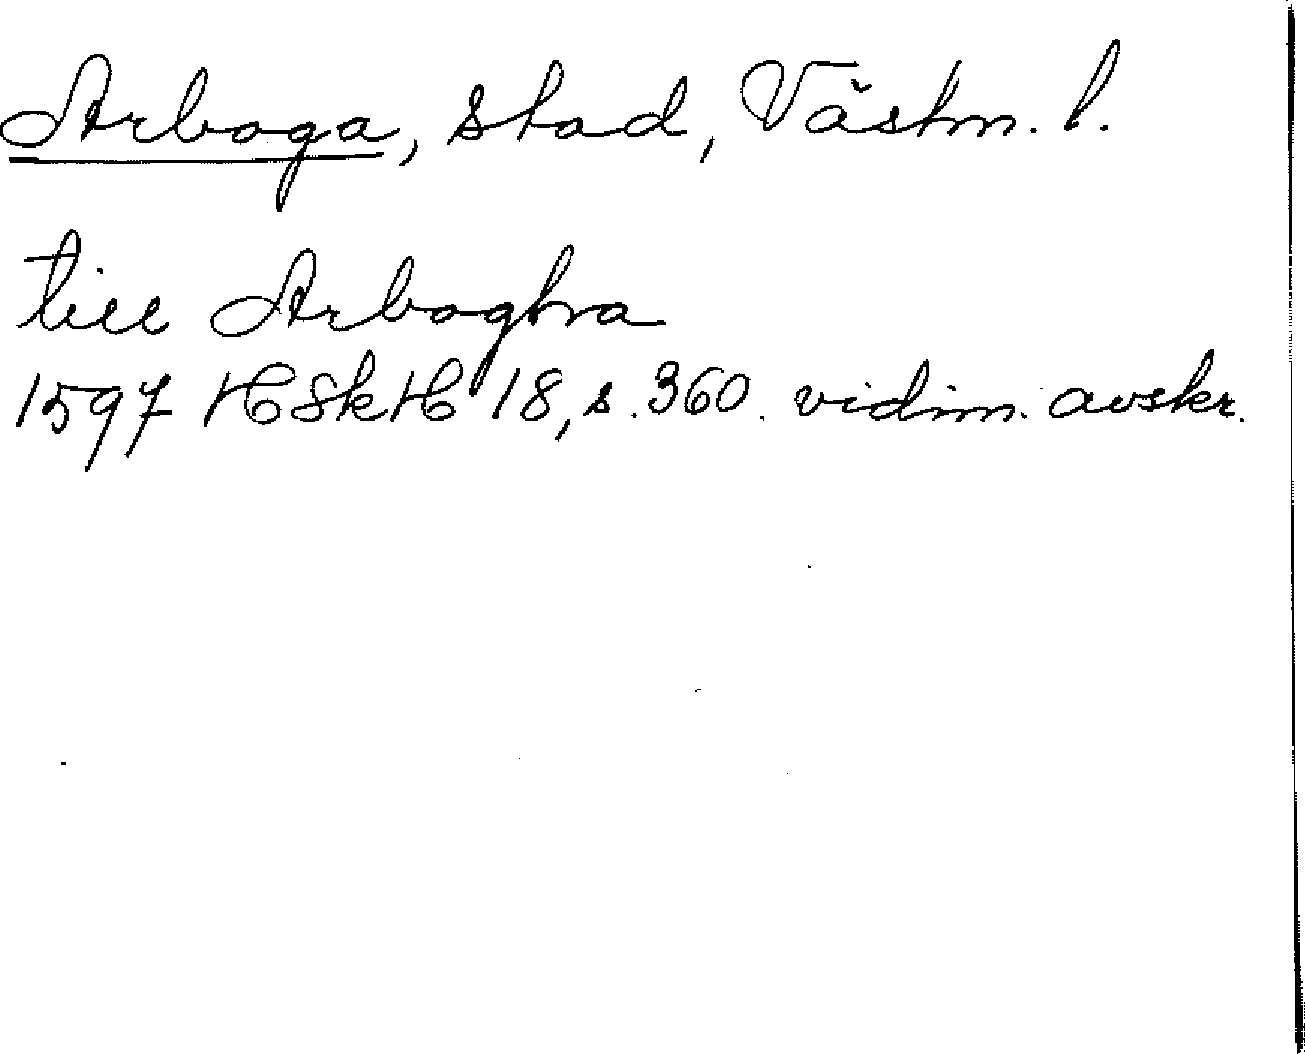 Arboga, stad, Västm. l.
till Arbogha
1597 HSkH 18, s. 360. vidim. avskr.